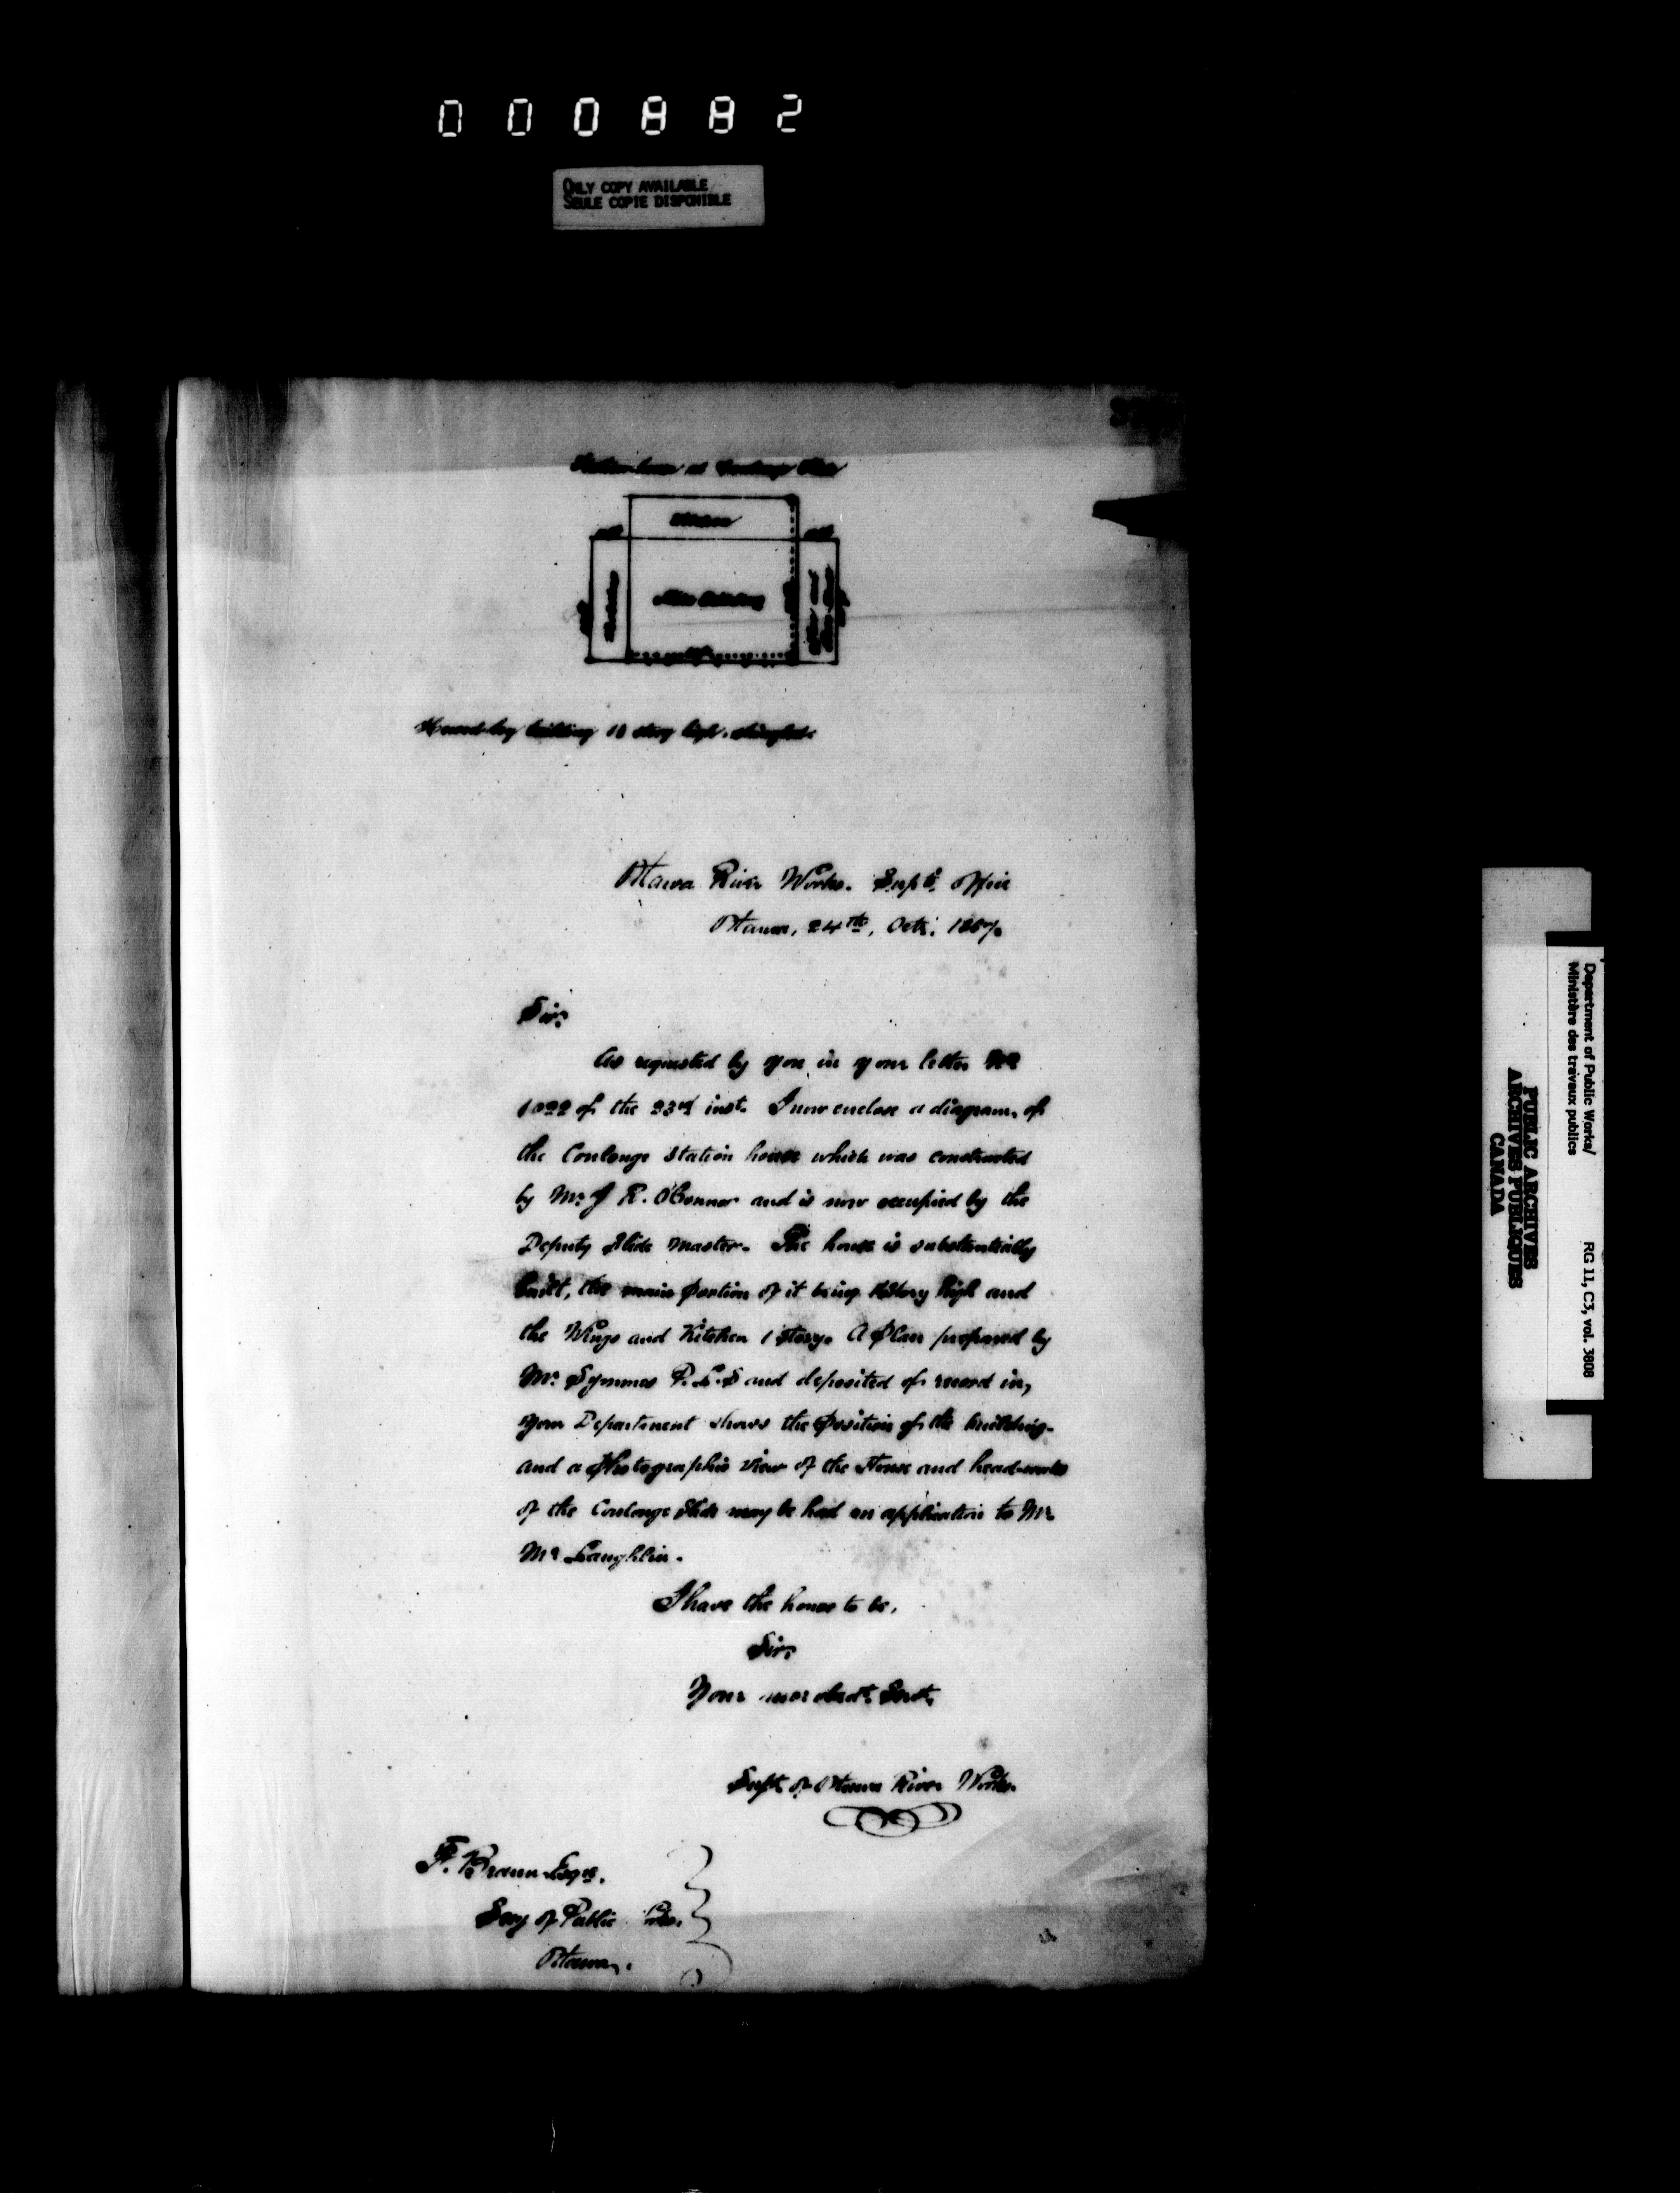 000882
ONLY COPY AVAILABLE
SEULE COPIE DISPONIBLE
Station house at Coulonge Slide
Kitchen
Main Building
Hewed log building 1½ story high. shingled.
Ottawa River Works. Supts. Office
Ottawa, 24th, Octr. 1867.
Sir,
As requested by you in your letter No
1022 of the 23rd inst. I now enclose a diagram, of
the Coulonge Station house which was constructed
by Mr J R. O'Connor and is now occupied by the
Deputy Slide Master. The house is substantially
built, the main portion of it being 1½ Story high and
the Wings and Kitchen 1 story. A Plan prepared by
Mr. Symmes P.L.S and deposited of record in,
your Department shows the Position of the building.
and a Photographic view of the House and head-works
of the Coulonge Slide may be had on application to Mr
Mc Laughlin.
I have the honor to be,
Sir,
Your obedt. Servt,
Supt. of Ottawa River Works.
F. Braun Esqre.
Secy of Public Wks.
Ottawa,.
Department of Public Works/
Ministère des travaux publics
RG 11, C3, vol. 3808
PUBLIC ARCHIVES
ARCHIVES PUBLIQUES
CANADA